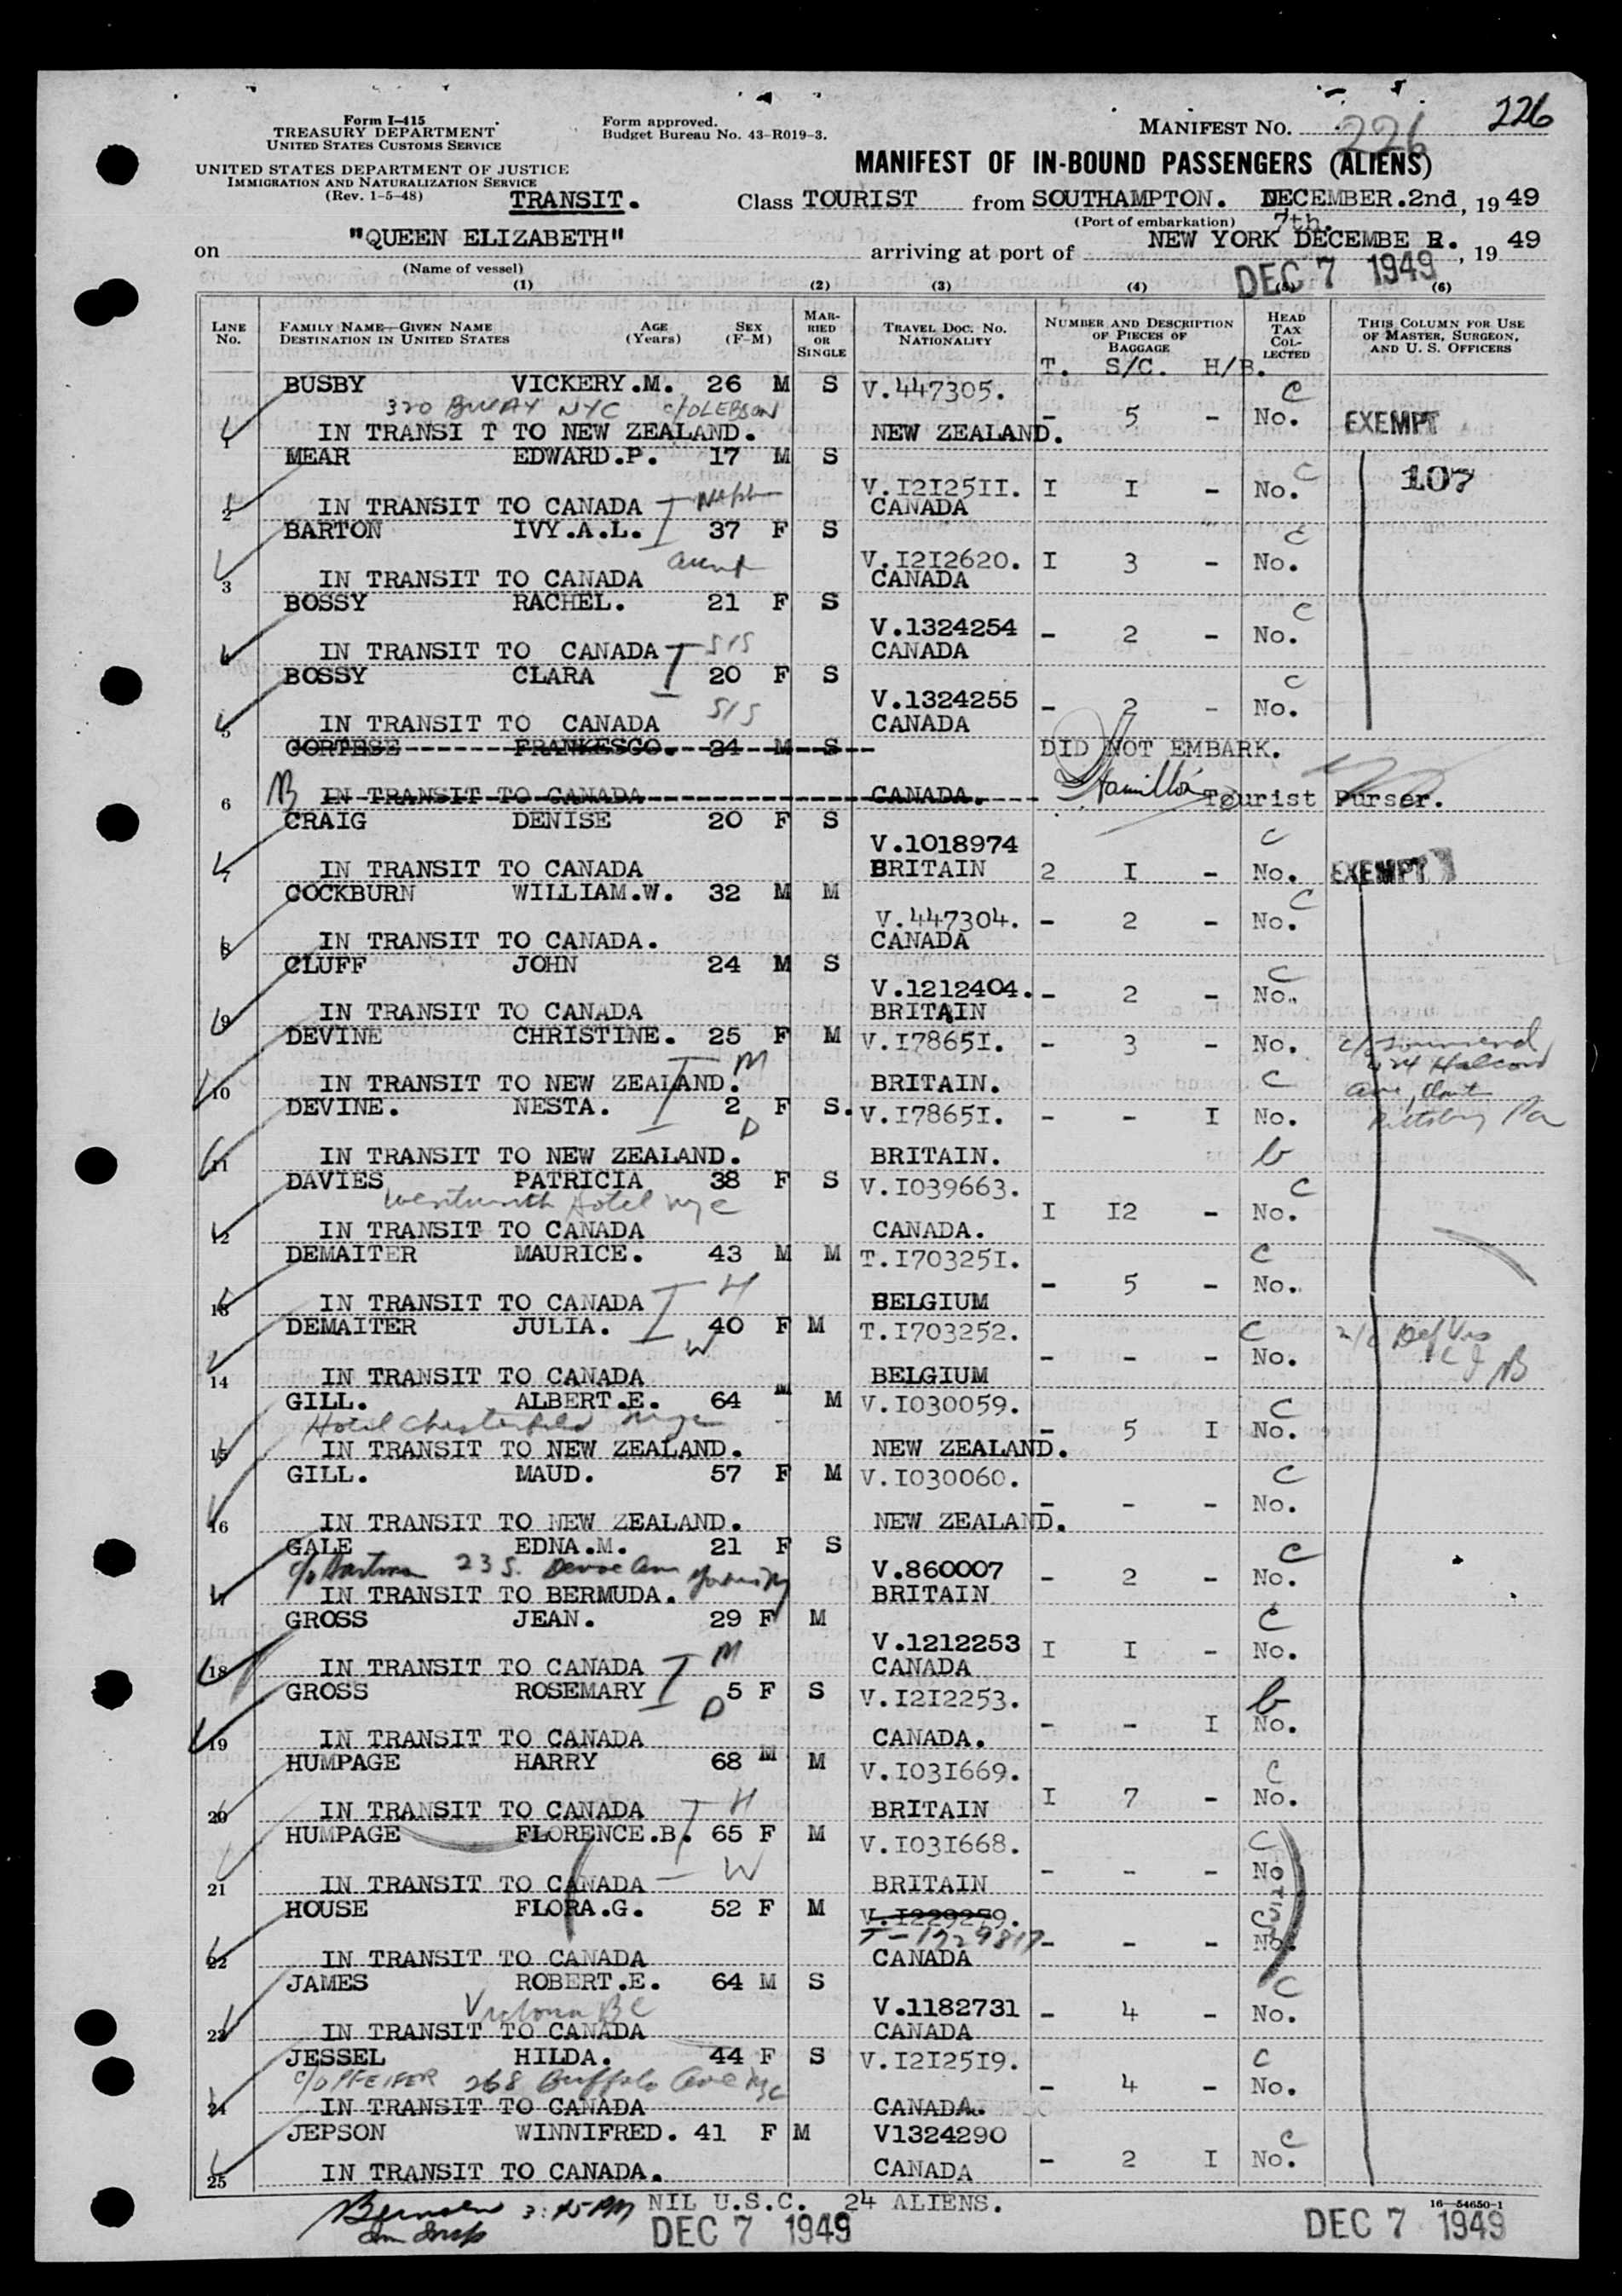 Form I-415
TREASURY DEPARTMENT
UNITED STATES CUSTOMS SERVICE
UNITED STATES DEPARTMENT OF JUSTICE
IMMIGRATION AND NATURALIZATION SERVICE
(Rev. 1-5-48) TRANSIT.
Form approved.
Budget Bureau No. 43-R019-3.
MANIFEST NO. 226 226
MANIFEST OF IN-BOUND PASSENGERS (ALIENS)
Class TOURIST from SOUTHAMPTON. DECEMBER.2nd, 19 49
(Port of embarkation) 7th.
on "QUEEN ELIZABETH" arriving at port of NEW YORK DECEMBE R. , 19 49
(Name of vessel) DEC 7 1949
(1) (2) (3) (4) (5) (6)
LINE No. FAMILY NAME—GIVEN NAME DESTINATION IN UNITED STATES AGE (Years) SEX (F-M) MARRIED OR SINGLE TRAVEL DOC. NO. NATIONALITY NUMBER AND DESCRIPTION OF PIECES OF BAGGAGE HEAD TAX COLLECTED THIS COLUMN FOR USE OF MASTER, SURGEON, AND U. S. OFFICERS
T. S/C. H/B.
BUSBY VICKERY.M. 26 M S V.447305. C
320 BWAY NYC c/o LEBSON - 5 - No. EXEMPT
1 IN TRANSI T TO NEW ZEALAND. NEW ZEALAND.
MEAR EDWARD.P. 17 M S C 107
V.I2I25II. I I - No.
2 IN TRANSIT TO CANADA CANADA
BARTON IVY.A.L. 37 F S C
aunt V.I2I2620. I 3 - No.
3 IN TRANSIT TO CANADA CANADA
BOSSY RACHEL. 21 F S C
V.1324254 - 2 - No.
4 IN TRANSIT TO CANADA SIS CANADA
BOSSY CLARA 20 F S C
SIS V.1324255 - 2 - No.
5 IN TRANSIT TO CANADA CANADA
CORTESE FRANKESCO. 24 M S DID NOT EMBARK.
6 IN TRANSIT TO CANADA CANADA. Hamilton Tourist Purser.
CRAIG DENISE 20 F S
V.1018974 C
7 IN TRANSIT TO CANADA BRITAIN 2 I - No. EXEMPT
COCKBURN WILLIAM.W. 32 M M C
V.447304. - 2 - No.
8 IN TRANSIT TO CANADA. CANADA
CLUFF JOHN 24 M S C
V.1212404. - 2 - No.
9 IN TRANSIT TO CANADA BRITAIN
DEVINE CHRISTINE. 25 F M V.I7865I. - 3 - No.
10 IN TRANSIT TO NEW ZEALAND. M BRITAIN. C
DEVINE. NESTA. 2 F S. V.I7865I. - - I No.
D
11 IN TRANSIT TO NEW ZEALAND. BRITAIN. b
DAVIES PATRICIA 38 F S V.I039663. C
Wentworth Hotel nyc I I2 - No.
12 IN TRANSIT TO CANADA CANADA.
DEMAITER MAURICE. 43 M M T.I70325I. C
H - 5 - No.
13 IN TRANSIT TO CANADA BELGIUM
DEMAITER JULIA. 40 F M T.I703252. C
W - - - No.
14 IN TRANSIT TO CANADA BELGIUM
GILL. ALBERT.E. 64 M M V.I030059. C
Hotel Chesterfield nyc - 5 I No.
15 IN TRANSIT TO NEW ZEALAND. NEW ZEALAND.
GILL. MAUD. 57 F M V.I030060. C
- - - No.
16 IN TRANSIT TO NEW ZEALAND. NEW ZEALAND.
GALE EDNA.M. 21 F S C
c/o 23 S. V.860007 - 2 - No.
17 IN TRANSIT TO BERMUDA. BRITAIN
GROSS JEAN. 29 F M C
M V.1212253 I I - No.
18 IN TRANSIT TO CANADA CANADA
GROSS ROSEMARY 5 F S V.I2I2253. b
D - - I No.
19 IN TRANSIT TO CANADA CANADA.
HUMPAGE HARRY 68 M M V.I03I669. C
H I 7 - No.
20 IN TRANSIT TO CANADA BRITAIN
HUMPAGE FLORENCE.B. 65 F M V.I03I668. C
W - - - No
21 IN TRANSIT TO CANADA BRITAIN
HOUSE FLORA.G. 52 F M V.I229279. C
- - - No.
22 IN TRANSIT TO CANADA CANADA
JAMES ROBERT.E. 64 M S C
Victoria BC V.1182731 - 4 - No.
23 IN TRANSIT TO CANADA CANADA
JESSEL HILDA. 44 F S V.I2I25I9. C
c/o PFEIFER 268 Buffalo Ave nyc - 4 - No.
24 IN TRANSIT TO CANADA CANADA.
JEPSON WINNIFRED. 41 F M V1324290 C
- 2 I No.
25 IN TRANSIT TO CANADA. CANADA
3:45PM NIL U.S.C. 24 ALIENS. 16—54650-1
DEC 7 1949 DEC 7 1949